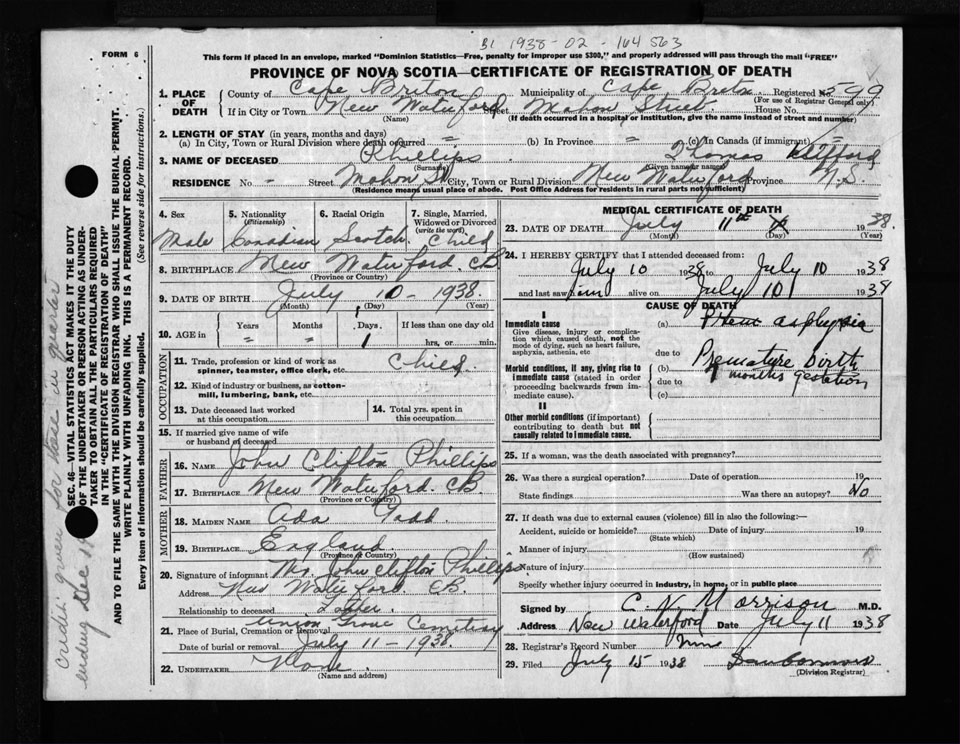 B1 1938-02-164563
FORM 6
This form if placed in an envelope, marked "Dominion Statistics—Free, penalty for improper use $300," and properly addressed will pass through the mail "FREE"
PROVINCE OF NOVA SCOTIA—CERTIFICATE OF REGISTRATION OF DEATH
1. PLACE OF DEATH
County of Cape Breton Municipality of Cape Breton Registered No. 599
(For use of Registrar General only)
If in City or Town New Waterford Street Mahon Street House No.
(Name) (If death occurred in a hospital or institution, give the name instead of street and number)
2. LENGTH OF STAY (in years, months and days)
(a) In City, Town or Rural Division where death occurred = (b) In Province = (c) In Canada (if immigrant)
3. NAME OF DECEASED Phillips Thomas
(Surname) (Given name or names)
RESIDENCE No - Street Mahon St City, Town or Rural Division New Waterford Province N.S.
(Residence means usual place of abode. Post Office Address for residents in rural parts not sufficient)
4. Sex
Male
5. Nationality (Citizenship)
Canadian
6. Racial Origin
Scotch
7. Single, Married, Widowed or Divorced (write the word)
Child
8. BIRTHPLACE New Waterford. CB
(Province or Country)
9. DATE OF BIRTH July 10 - 1938
(Month) (Day) (Year)
10. AGE in Years Months Days If less than one day
= = 1 hrs. or min.
OCCUPATION
11. Trade, profession or kind of work as spinner, teamster, office clerk, etc. Child
12. Kind of industry or business, as cotton-mill, lumbering, bank, etc.
13. Date deceased last worked at this occupation
14. Total yrs. spent in this occupation
15. If married give name of wife or husband of deceased
FATHER
16. NAME John Clifton Phillips
17. BIRTHPLACE New Waterford. CB
(Province or Country)
MOTHER
18. MAIDEN NAME Ada
19. BIRTHPLACE England
(Province or Country)
20. Signature of informant Mr. John Clifton Phillips
Address New Waterford. CB
Relationship to deceased Father.
21. Place of Burial, Cremation or Removal Union Grove Cemetery
Date of burial or removal July 11 - 1938.
22. UNDERTAKER None.
(Name and address)
MEDICAL CERTIFICATE OF DEATH
23. DATE OF DEATH July 11th 1938.
(Month) (Day) (Year)
24. I HEREBY CERTIFY that I attended deceased from:
July 10 1938 to July 10 1938
and last saw him alive on July 10 1938
CAUSE OF DEATH
I
Immediate cause
Give disease, injury or complication which caused death, not the mode of dying, such as heart failure, asphyxia, asthenia, etc
(a) asphyxia
due to
Morbid conditions, if any, giving rise to immediate cause (stated in order proceeding backwards from immediate cause).
(b) Premature birth
due to 7 months gestation
(c)
II
Other morbid conditions (if important) contributing to death but not causally related to immediate cause.
25. If a woman, was the death associated with pregnancy?
26. Was there a surgical operation? Date of operation 19
State findings Was there an autopsy? No
27. If death was due to external causes (violence) fill in also the following:—
Accident, suicide or homicide? Date of injury 19
(State which)
Manner of injury
(How sustained)
Nature of injury
Specify whether injury occurred in industry, in home, or in public place
Signed by C. N. Morrison M.D.
Address New Waterford Date July 11 1938
28. Registrar's Record Number
29. Filed July 15 1938
(Division Registrar)
SEC. 46—VITAL STATISTICS ACT MAKES IT THE DUTY
OF THE UNDERTAKER OR PERSON ACTING AS UNDERTAKER TO OBTAIN ALL THE PARTICULARS REQUIRED
IN THE "CERTIFICATE OF REGISTRATION OF DEATH"
AND TO FILE THE SAME WITH THE DIVISION REGISTRAR WHO SHALL ISSUE THE BURIAL PERMIT.
WRITE PLAINLY WITH UNFADING INK. THIS IS A PERMANENT RECORD.
Every item of information should be carefully supplied.
(See reverse side for instructions.)
Credit given for this quarter
ending Dec